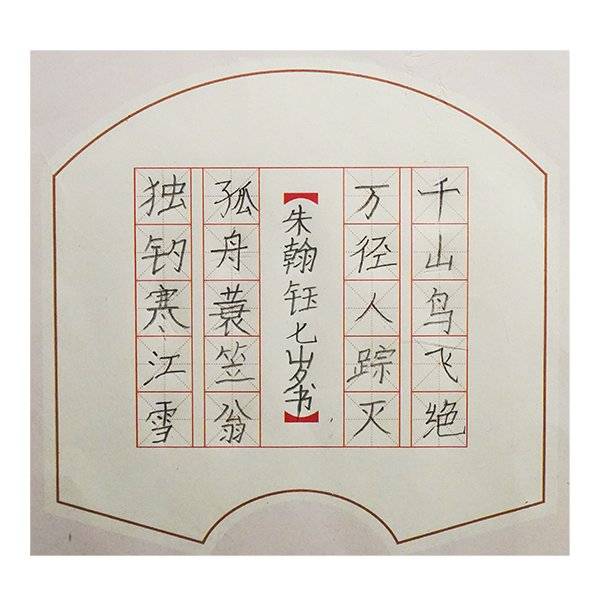 千山鸟飞绝
万径人踪灭
【朱翰钰七岁书】
孤舟蓑笠翁
独钓寒江雪